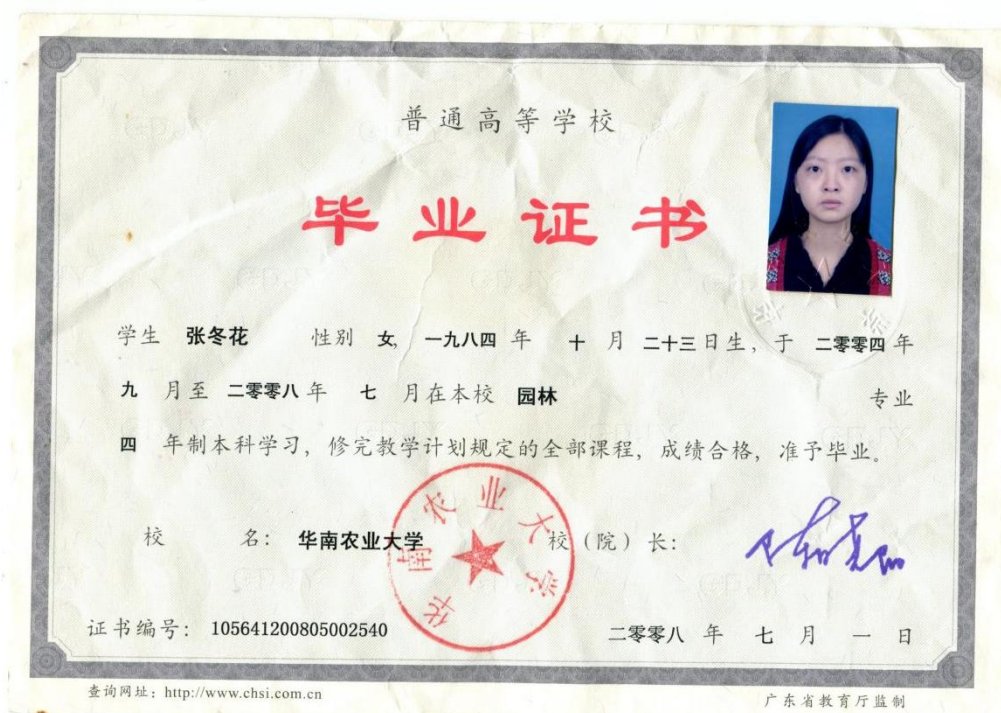 普通高等学校
毕业证书
学生 张冬花 性别 女, 一九八四 年 十 月 二十三 日生, 于 二零零四 年
九 月至 二零零八 年 七 月在本校 园林 专业
四 年制本科学习, 修完教学计划规定的全部课程, 成绩合格, 准予毕业。
校 名: 华南农业大学 校(院)长:
华南农业大学
证书编号: 105641200805002540 二零零八 年 七 月 一 日
查询网址: http://www.chsi.com.cn 广东省教育厅监制